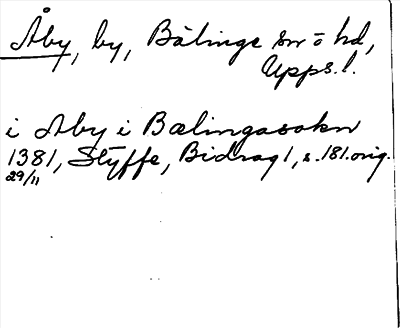 Åby, by, Bälinge sn o hd,
Upps. l.
i Aby i Bælingasokn
1381, Styffe, Bidrag 1, s. 181. orig.
29/11